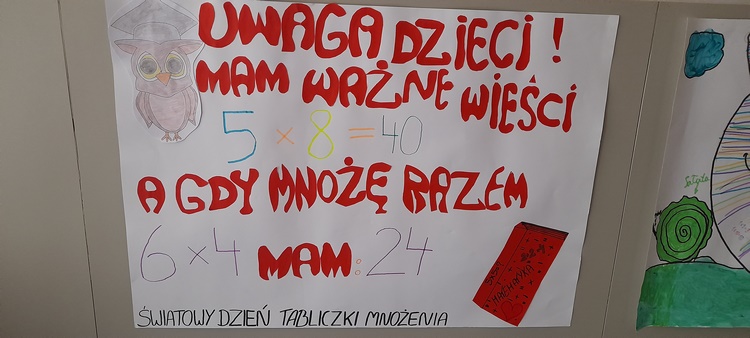 UWAGA DZIECI!
MAM WAŻNE WIEŚCI
5 × 8 = 40
A GDY MNOŻĘ RAZEM
6 × 4 MAM: 24
MATEMATYKA
ŚWIATOWY DZIEŃ TABLICZKI MNOŻENIA